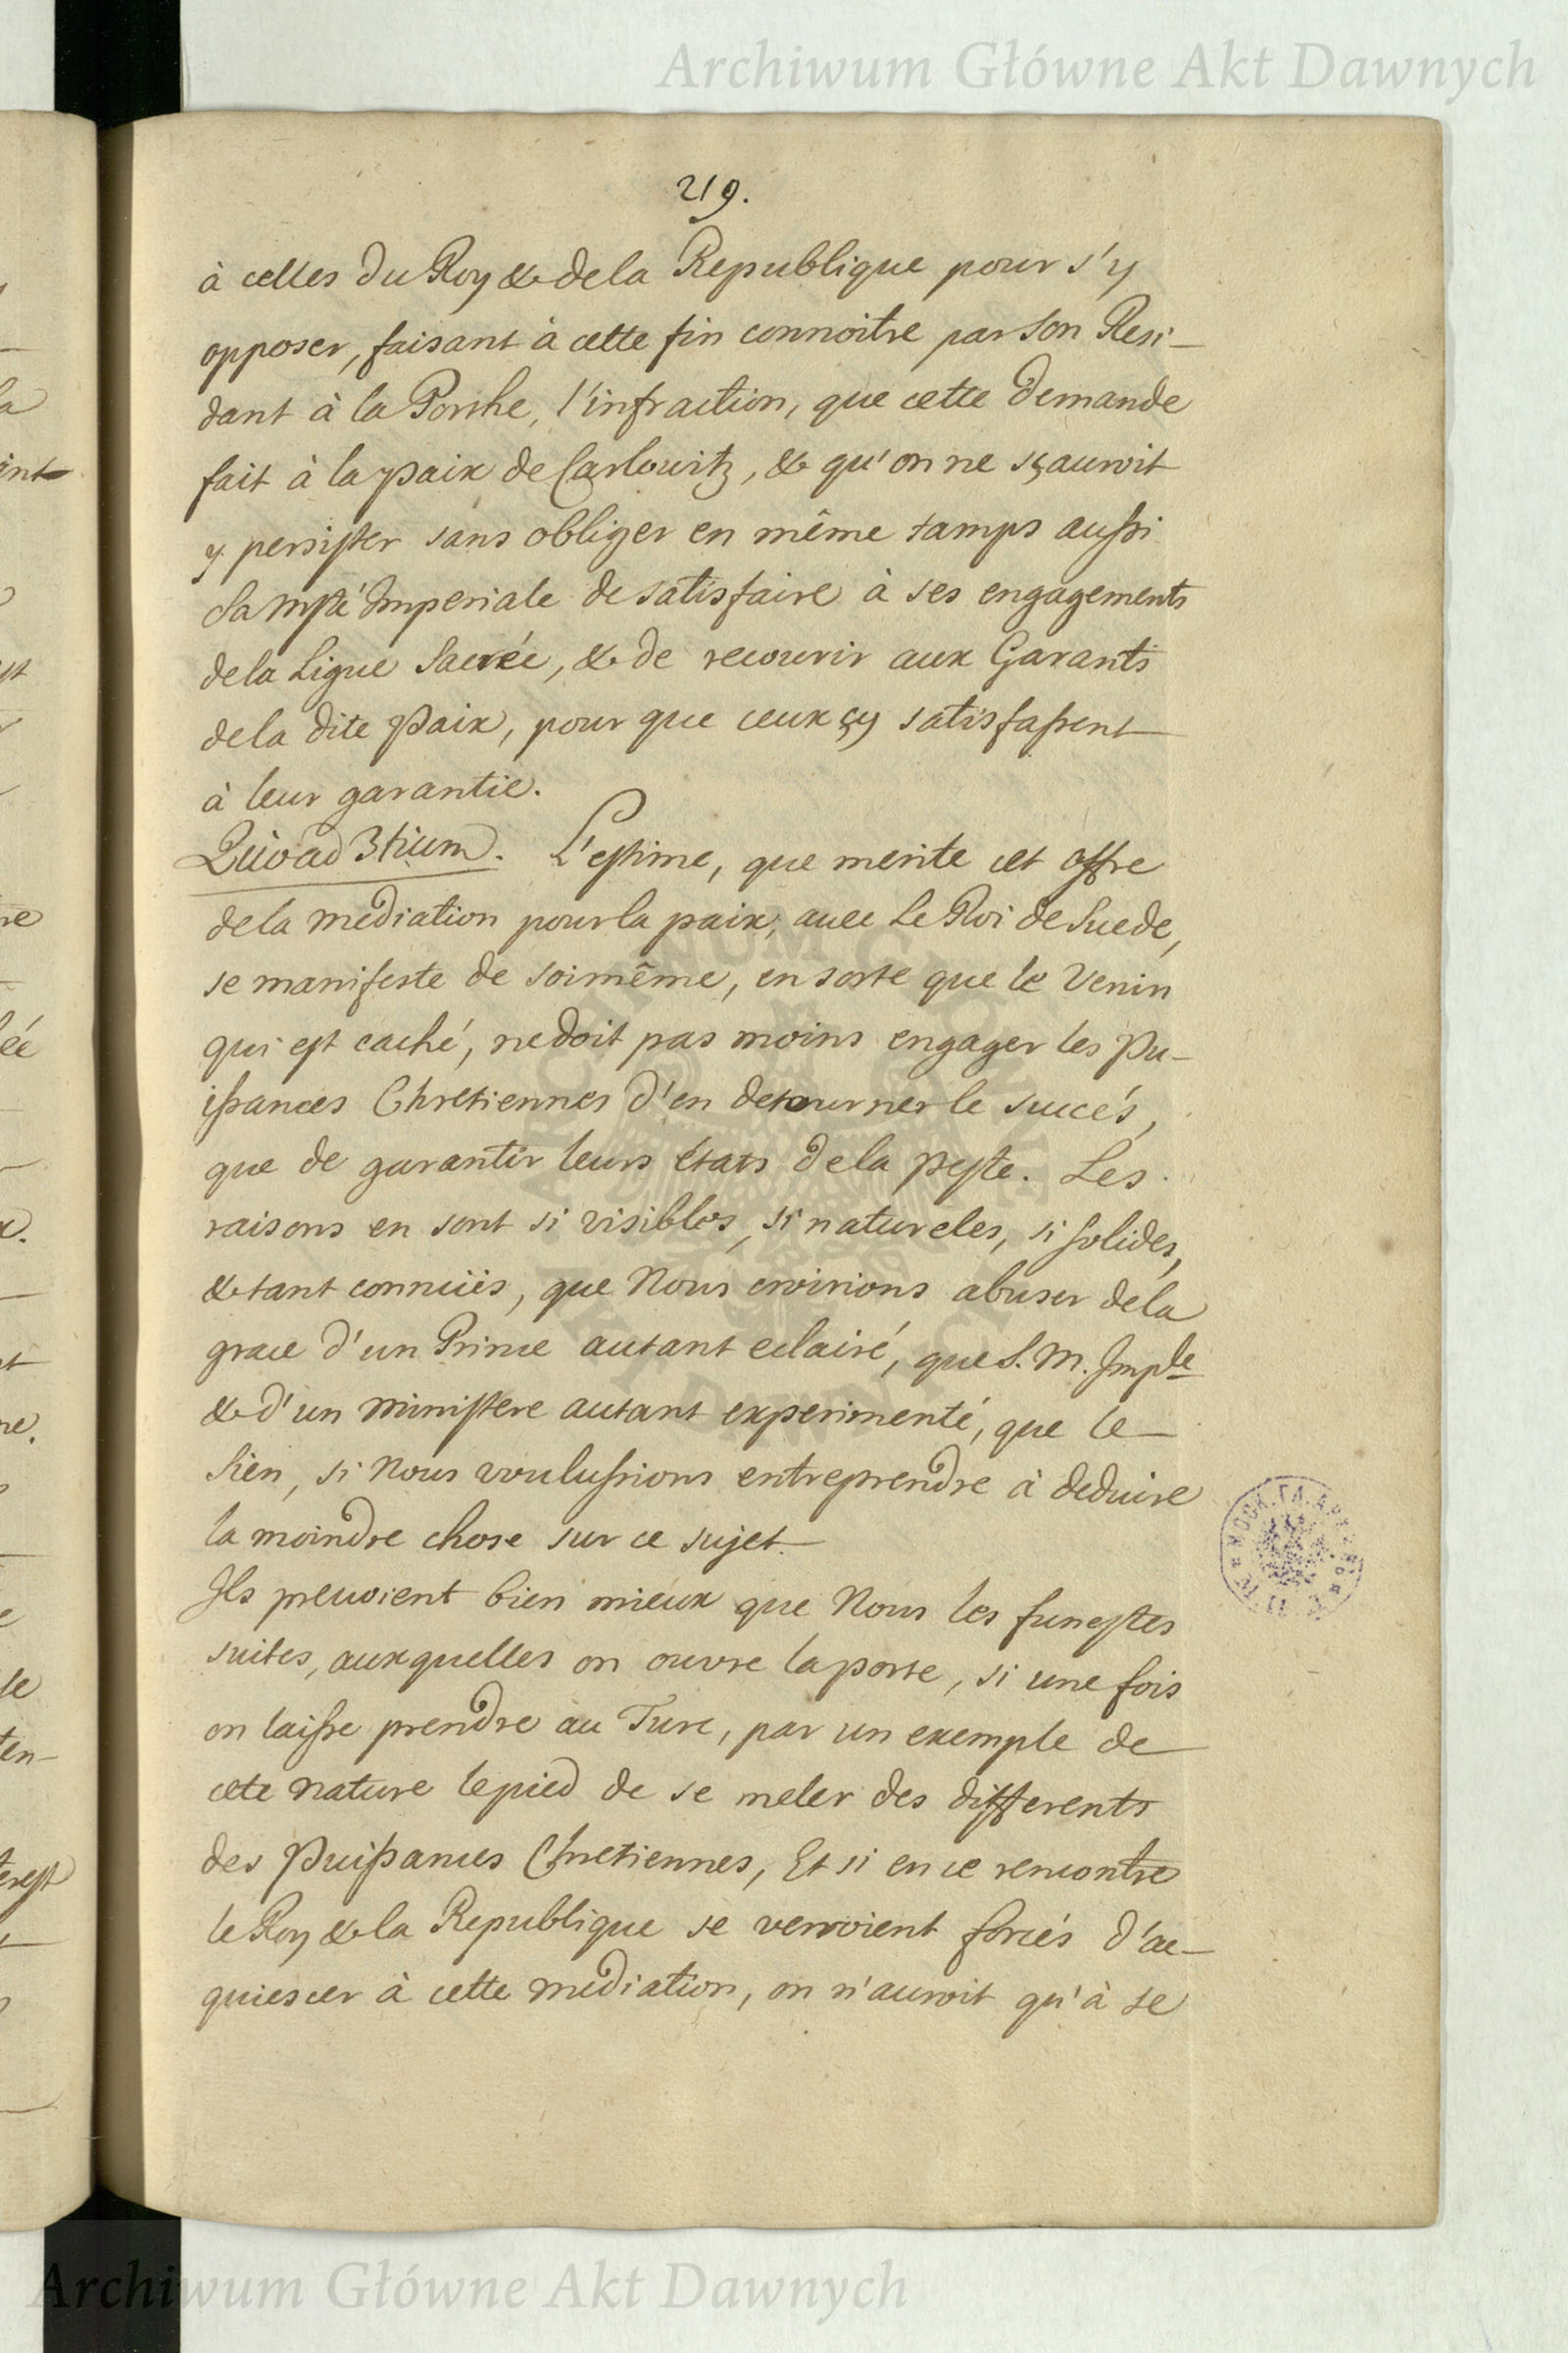 Archiwum Główne Akt Dawnych
219.
à celles du Roy & de la Republique pour s'y
opposer, faisant à cette fin connoitre par son Resi-
dant à la Porthe, l'infraction, que cette demande
fait à la paix de Carlowitz, & qu'on ne sçauroit
y persister sans obliger en même tamps aussi
Sa Mste Imperiale de satisfaire à ses engagements
de la Ligue Sacrée, & de recourir aux Garants
de la dite Paix, pour que ceux çy satisfassent
à leur garantie.
Quoad 3tium. L'estime, que merite cet offre
de la mediation pour la paix, avec Le Roi de Suede,
se manifeste de soi même, en sorte que le Venin
qui est caché, ne doit pas moins engager les Pu-
issances Chretiennes d'en detourner le succés,
que de garantir leurs états de la peste. Les
raisons en sont si visibles, si natureles, si solides,
& tant connües, que Nous croirions abuser de la
grace d'un Prince autant eclairé, que S. M. Imple
& d'un ministere autant experimenté, que le
Sien, si Nous voulussions entreprendre à deduire
la moindre chose sur ce sujet.
Ils prevoient bien mieux que Nous les funestes
suites, auxquelles on ouvre la porte, si une fois
on laisse prendre au Turc, par un exemple de
cete nature le pied de se meler des differents
des Puissances Chretiennes, Et si en ce rencontre
le Roy & la Republique se verroient forcés d'ac-
quiescer à cette mediation, on n'auroit qu'à se
Archiwum Główne Akt Dawnych